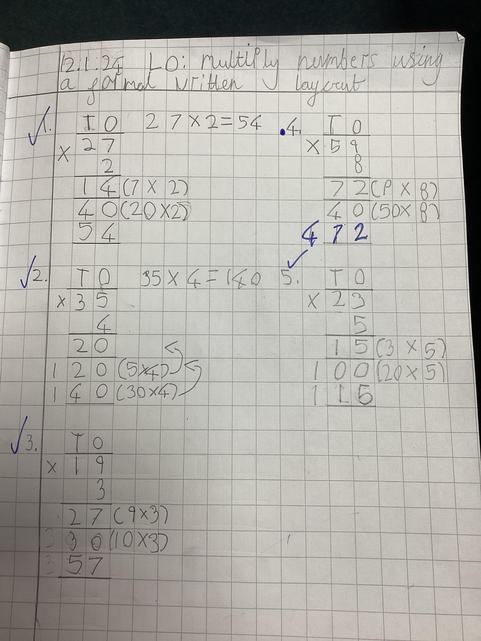 12.1.24 LO: multiply numbers using
a formal written layout
1. T O 27 x 2 = 54
x 2 7
2
1 4 (7 x 2)
4 0 (20 x 2)
5 4
2. T O 35 x 4 = 140
x 3 5
4
2 0
1 2 0 (5x4)
1 4 0 (30x4)
3. T O
x 1 9
3
2 7 (9x3)
3 0 (10x3)
5 7
.4. T O
x 5 9
8
7 2 (9 x 8)
4 0 (50x 8)
4 7 2
5. T O
x 2 3
5
1 5 (3 x 5)
1 0 0 (20 x 5)
1 1 5